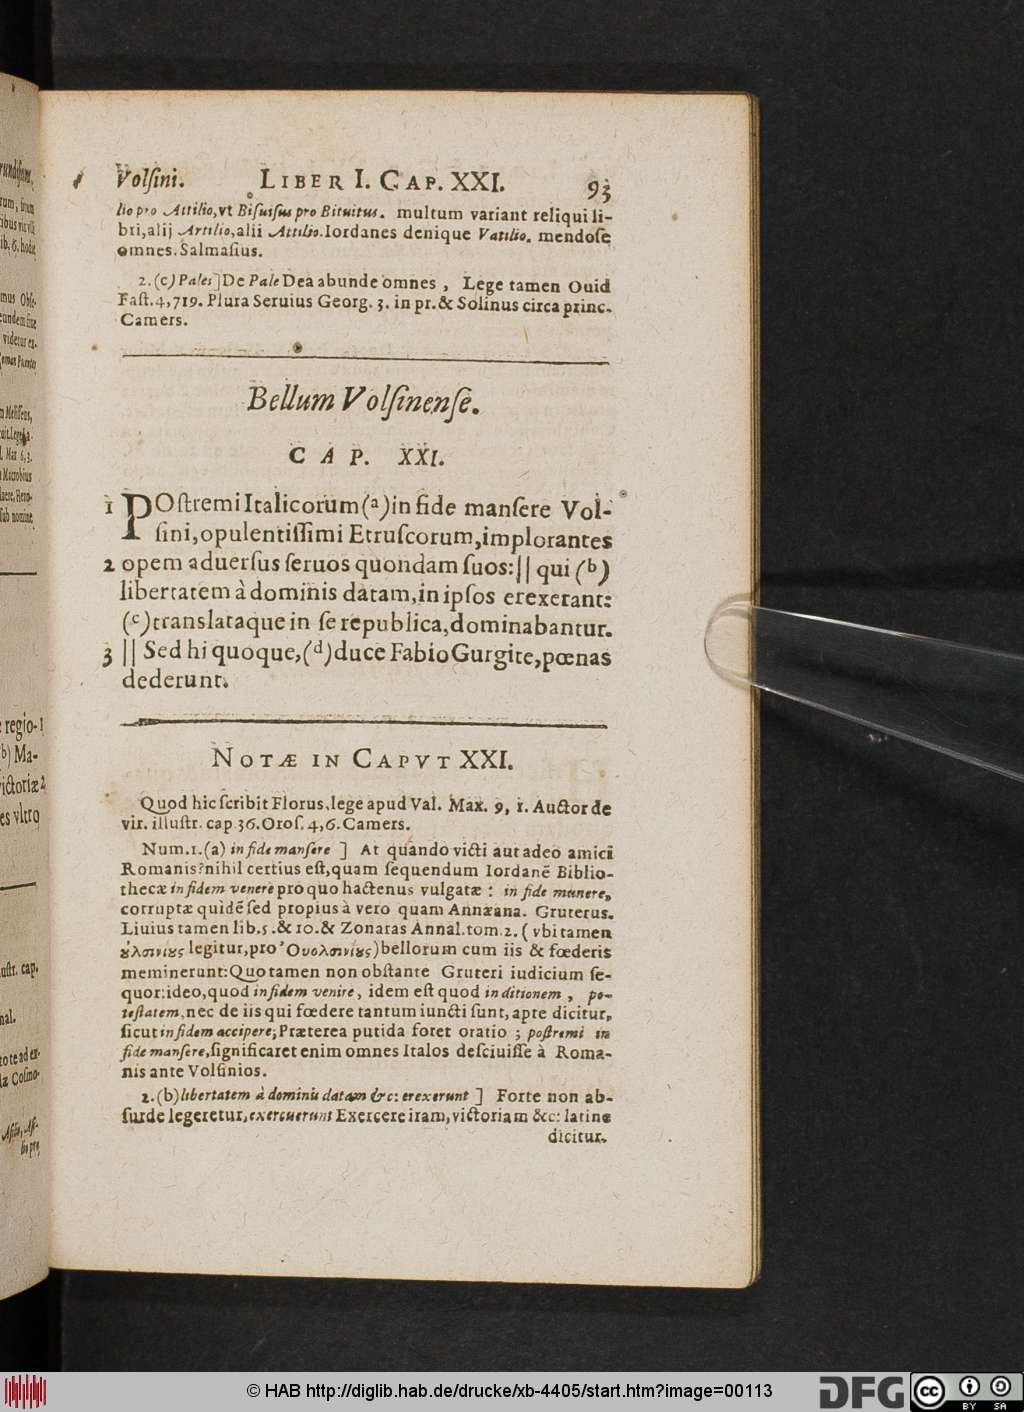 Volſini. LIBER I. CAP. XXI. 93
lio pro Attilio, vt Biſuiſus pro Bituitus. multum variant reliqui li-
bri, alij Artilio, alii Attilio. Iordanes denique Vatilio. mendoſe
omnes. Salmaſius.
2. (c) Pales] De Pale Dea abunde omnes, Lege tamen Ouid
Faſt. 4, 719. Plura Seruius Georg. 3. in pr. & Solinus circa princ.
Camers.
Bellum Volſinenſe.
CAP. XXI.
1 POſtremi Italicorum (a) in fide manſere Vol-
ſini, opulentiſſimi Etruſcorum, implorantes
2 opem aduerſus ſeruos quondam ſuos: || qui (b)
libertatem à dominis datam, in ipſos erexerant:
(c) translataque in ſe republica, dominabantur.
3 || Sed hi quoque, (d) duce Fabio Gurgite, pœnas
dederunt.
NOTÆ IN CAPVT XXI.
Quod hic ſcribit Florus, lege apud Val. Max. 9, 1. Auctor de
vir. illuſtr. cap. 36. Oroſ. 4, 6. Camers.
Num. 1. (a) in fide manſere ] At quando victi aut adeo amici
Romanis? nihil certius eſt, quam ſequendum Iordanē Biblio-
thecæ in fidem venere pro quo hactenus vulgatæ : in fide munere,
corruptæ quidē ſed propius à vero quam Annæana. Gruterus.
Liuius tamen lib. 5. & 10. & Zonaras Annal. tom. 2. ( vbi tamen
ȣ̓λσινίȣς legitur, pro Ὀυολσινίȣς) bellorum cum iis & fœderis
meminerunt: Quo tamen non obſtante Gruteri iudicium ſe-
quor: ideo, quod in fidem venire, idem eſt quod in ditionem, po-
teſtatem, nec de iis qui fœdere tantum iuncti ſunt, apte dicitur,
ſicut in fidem accipere; Præterea putida foret oratio ; poſtremi in
fide manſere, ſignificaret enim omnes Italos deſciuiſſe à Roma-
nis ante Volſinios.
2. (b) libertatem à dominis datam &c: erexerunt ] Forte non ab-
ſurde legeretur, exercuerunt Exercere iram, victoriam &c: latine
dicitur.
rum, ſirum
ib, 6. hodie
mus Obſ.
eundem ſiue
videtur ex-
n Meſſſens,
l. Max 6, 3.
Macrobius
ſub nomine
regio- 1
(b) Ma-
victoriæ 2
es vltro
uſtr. cap.
nal.
to te ad ex-
læ Coſmo-
Aſilio, Aſſ-
lio pro
© HAB http://diglib.hab.de/drucke/xb-4405/start.htm?image=00113
DFG
cc
BY SA